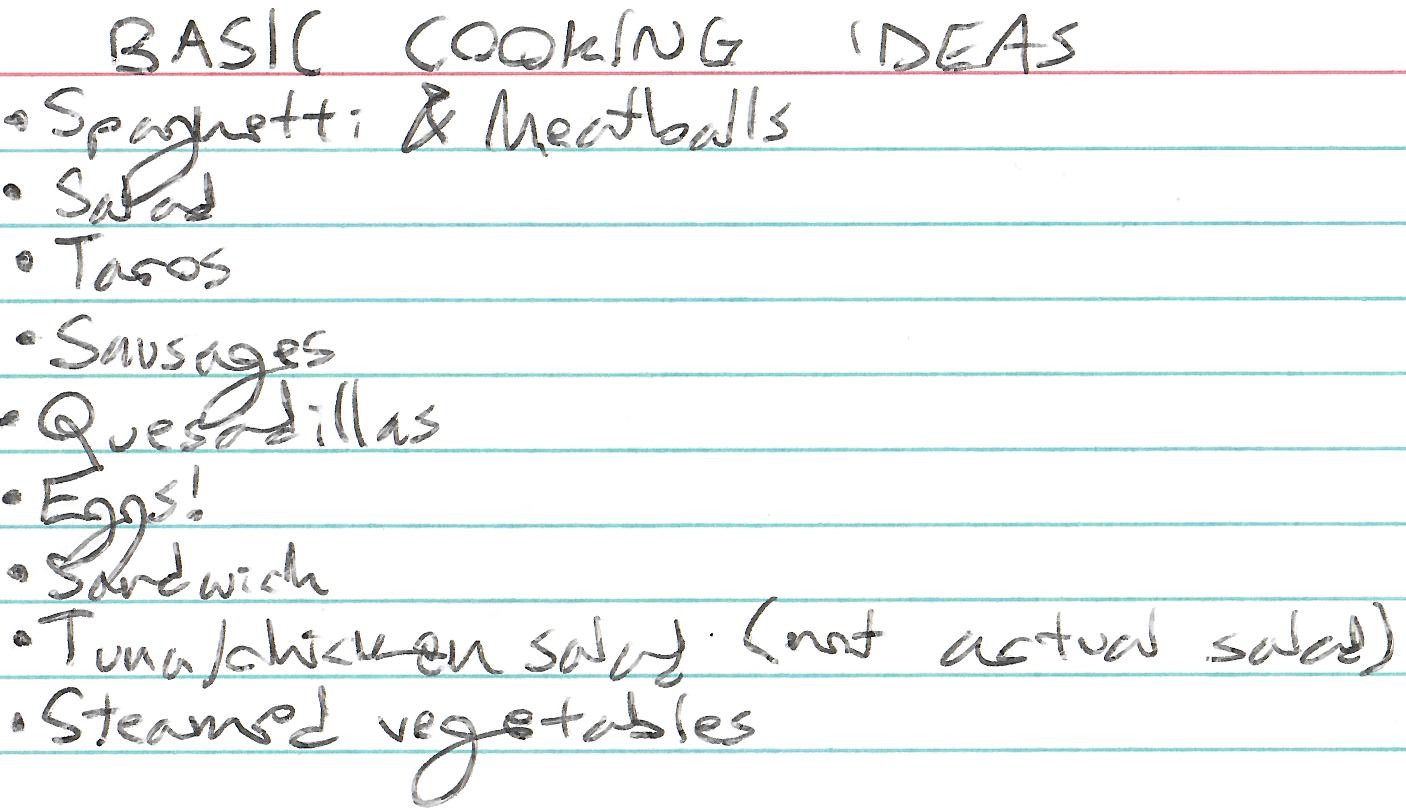 BASIC COOKING IDEAS
• Spaghetti & Meatballs
• Salad
• Tacos
• Sausages
• Quesadillas
• Eggs!
• Sandwich
• Tuna/chicken salad (not actual salad)
• Steamed vegetables